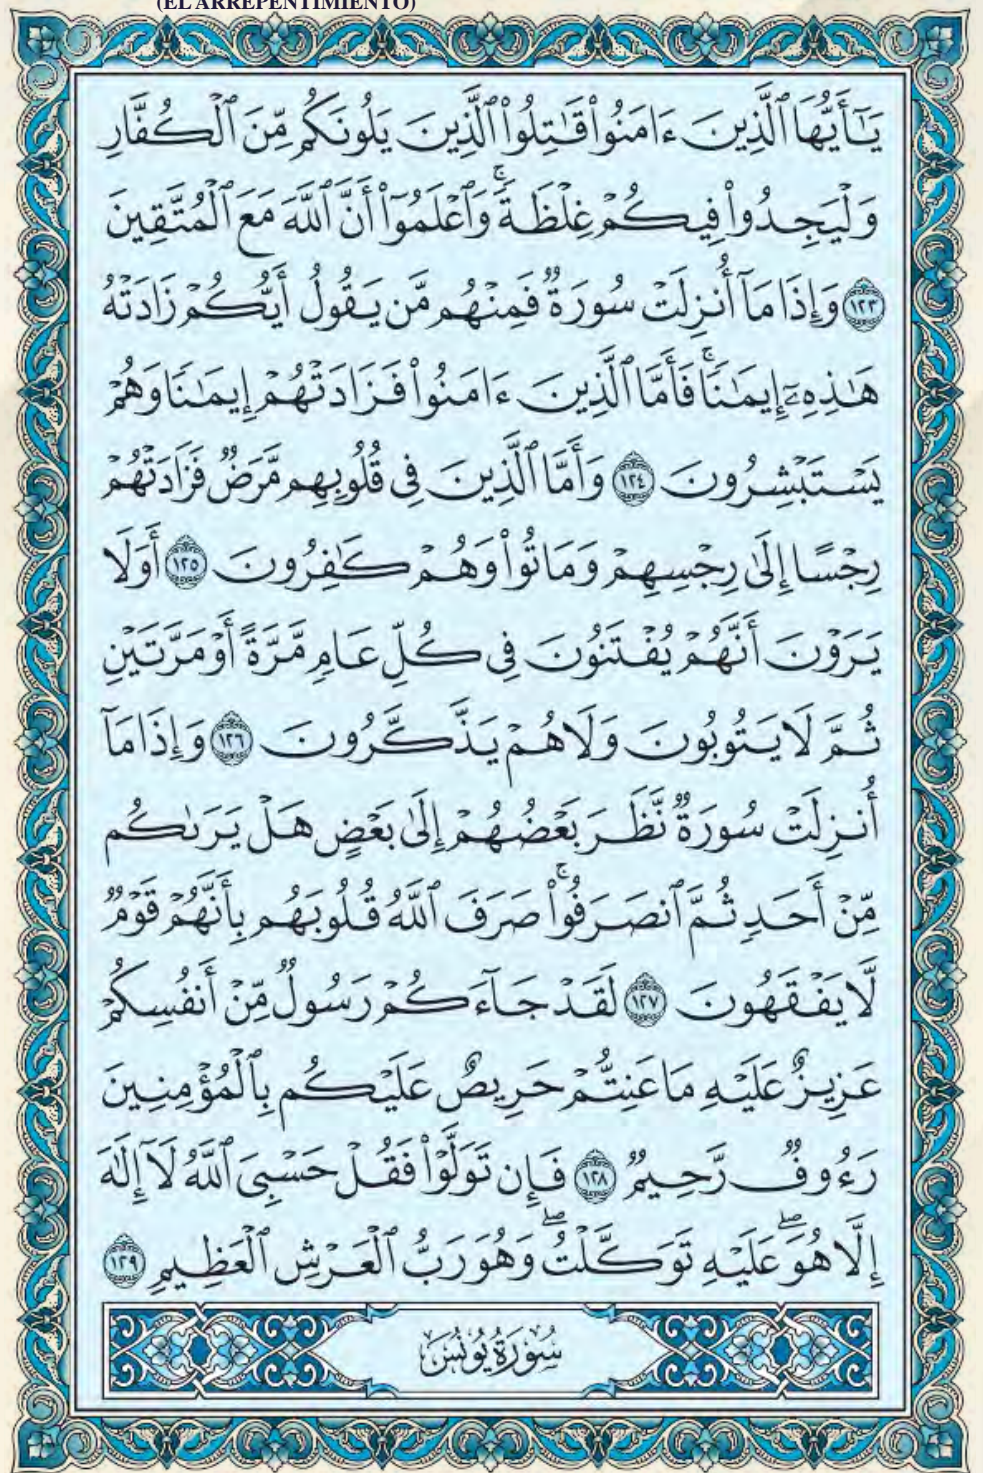 (EL ARREPENTIMIENTO)
يَـٰٓأَيُّهَا ٱلَّذِينَ ءَامَنُوا۟ قَـٰتِلُوا۟ ٱلَّذِينَ يَلُونَكُم مِّنَ ٱلْكُفَّارِ
وَلْيَجِدُوا۟ فِيكُمْ غِلْظَةً ۚ وَٱعْلَمُوٓا۟ أَنَّ ٱللَّهَ مَعَ ٱلْمُتَّقِينَ
١٢٣ وَإِذَا مَآ أُنزِلَتْ سُورَةٌ فَمِنْهُم مَّن يَقُولُ أَيُّكُمْ زَادَتْهُ
هَـٰذِهِۦٓ إِيمَـٰنًا ۚ فَأَمَّا ٱلَّذِينَ ءَامَنُوا۟ فَزَادَتْهُمْ إِيمَـٰنًا وَهُمْ
يَسْتَبْشِرُونَ ١٢٤ وَأَمَّا ٱلَّذِينَ فِى قُلُوبِهِم مَّرَضٌ فَزَادَتْهُمْ
رِجْسًا إِلَىٰ رِجْسِهِمْ وَمَاتُوا۟ وَهُمْ كَـٰفِرُونَ ١٢٥ أَوَلَا
يَرَوْنَ أَنَّهُمْ يُفْتَنُونَ فِى كُلِّ عَامٍ مَّرَّةً أَوْ مَرَّتَيْنِ
ثُمَّ لَا يَتُوبُونَ وَلَا هُمْ يَذَّكَّرُونَ ١٢٦ وَإِذَا مَآ
أُنزِلَتْ سُورَةٌ نَّظَرَ بَعْضُهُمْ إِلَىٰ بَعْضٍ هَلْ يَرَىٰكُم
مِّنْ أَحَدٍ ثُمَّ ٱنصَرَفُوا۟ ۚ صَرَفَ ٱللَّهُ قُلُوبَهُم بِأَنَّهُمْ قَوْمٌ
لَّا يَفْقَهُونَ ١٢٧ لَقَدْ جَآءَكُمْ رَسُولٌ مِّنْ أَنفُسِكُمْ
عَزِيزٌ عَلَيْهِ مَا عَنِتُّمْ حَرِيصٌ عَلَيْكُم بِٱلْمُؤْمِنِينَ
رَءُوفٌ رَّحِيمٌ ١٢٨ فَإِن تَوَلَّوْا۟ فَقُلْ حَسْبِىَ ٱللَّهُ لَآ إِلَـٰهَ
إِلَّا هُوَ ۖ عَلَيْهِ تَوَكَّلْتُ ۖ وَهُوَ رَبُّ ٱلْعَرْشِ ٱلْعَظِيمِ ١٢٩
سُورَةُ يُونُسَ